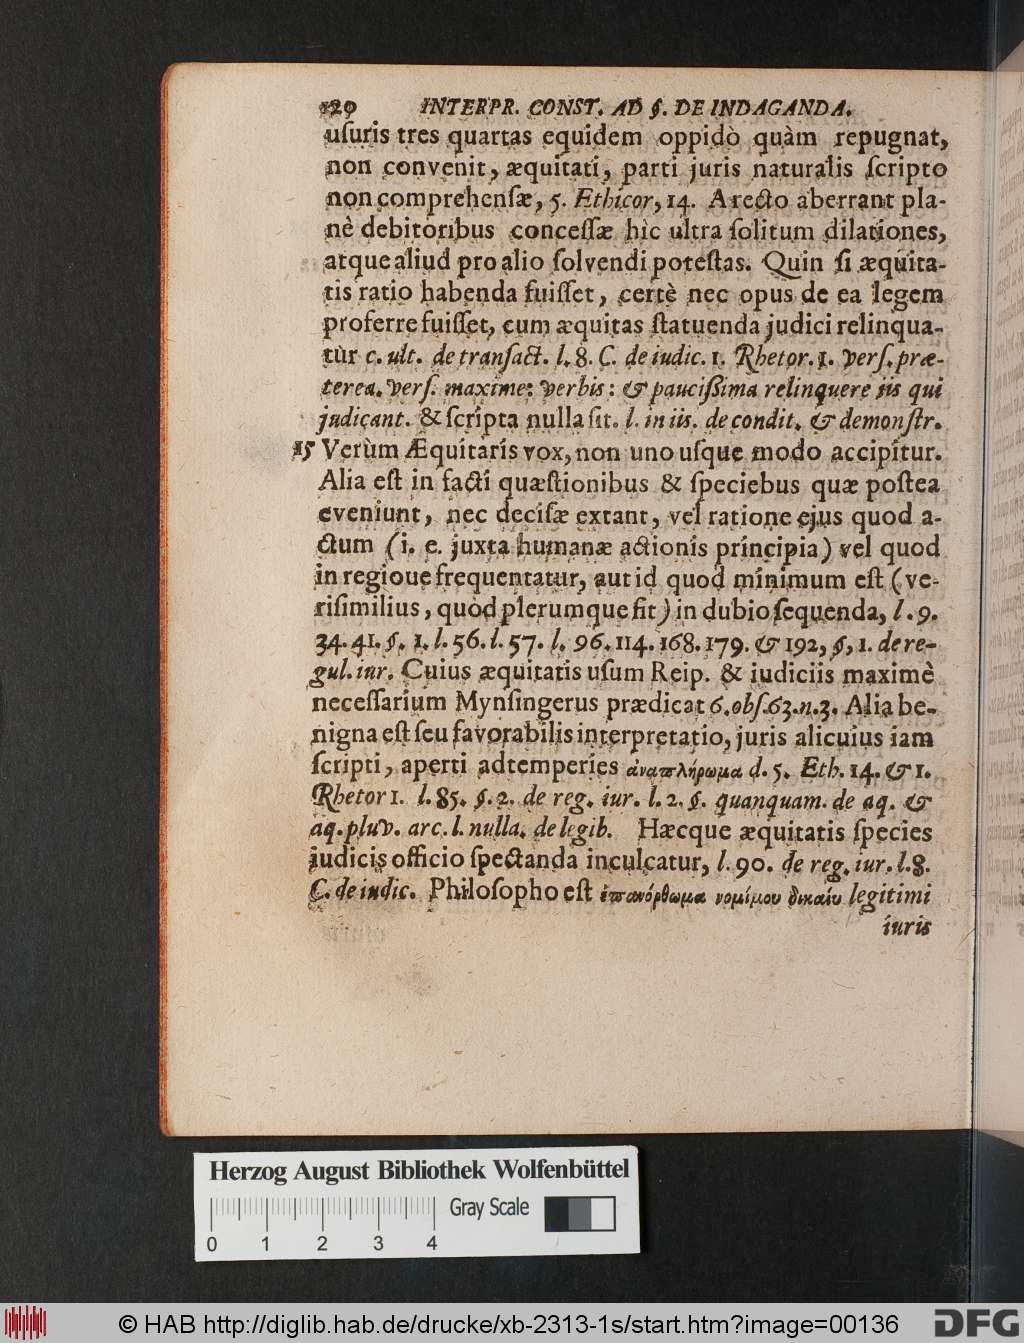 120 INTERPR. CONST. AD §. DE INDAGANDA.
uſuris tres quartas equidem oppidò quàm repugnat,
non convenit, æquitati, parti juris naturalis ſcripto
non comprehenſæ, 5. Ethicor, 14. A recto aberrant pla-
nè debitoribus conceſſæ hìc ultra ſolitum dilationes,
atque aliud pro alio ſolvendi poteſtas. Quin ſi æquita-
tis ratio habenda fuiſſet, certè nec opus de ea legem
proferre fuiſſet, cum æquitas ſtatuenda judici relinqua-
tùr c. ult. de tranſact. l. 8. C. de iudic. 1. Rhetor. 1. verſ. præ-
terea. verſ. maxime: verbis: & pauciſſima relinquere iis qui
judicant. & ſcripta nulla ſit. l. in iis. de condit. & demonſtr.
15 Verùm Æquitaris vox, non uno uſque modo accipitur.
Alia eſt in facti quæſtionibus & ſpeciebus quæ poſtea
eveniunt, nec deciſæ extant, vel ratione ejus quod a-
ctum (i. e. juxta humanæ actionis principia) vel quod
in regioue frequentatur, aut id quod minimum eſt (ve-
riſimilius, quòd plerumque fit) in dubio ſequenda, l. 9.
34. 41. §. 1. l. 56. l. 57. l. 96. 114. 168. 179. & 192, §, 1. de re-
gul. iur. Cuius æquitatis uſum Reip. & iudiciis maximè
neceſſarium Mynſingerus prædicat 6. obſ. 63. n. 3. Alia be-
nigna eſt ſeu favorabilis interpretatio, juris alicuius iam
ſcripti, aperti adtemperies ἀναπλήρωμα d. 5. Eth. 14. & 1.
Rhetor 1. l. 85. §. 2. de reg. iur. l. 2. §. quanquam. de aq. &
aq. pluv. arc. l. nulla. de legib. Hæcque æquitatis ſpecies
iudicis officio ſpectanda inculcatur, l. 90. de reg. iur. l. 8.
C. de iudic. Philoſopho eſt ἐπανόρθωμα νομίμου δικαίου legitimi
iuris
Herzog August Bibliothek Wolfenbüttel
Gray Scale
0 1 2 3 4
© HAB http://diglib.hab.de/drucke/xb-2313-1s/start.htm?image=00136
DFG